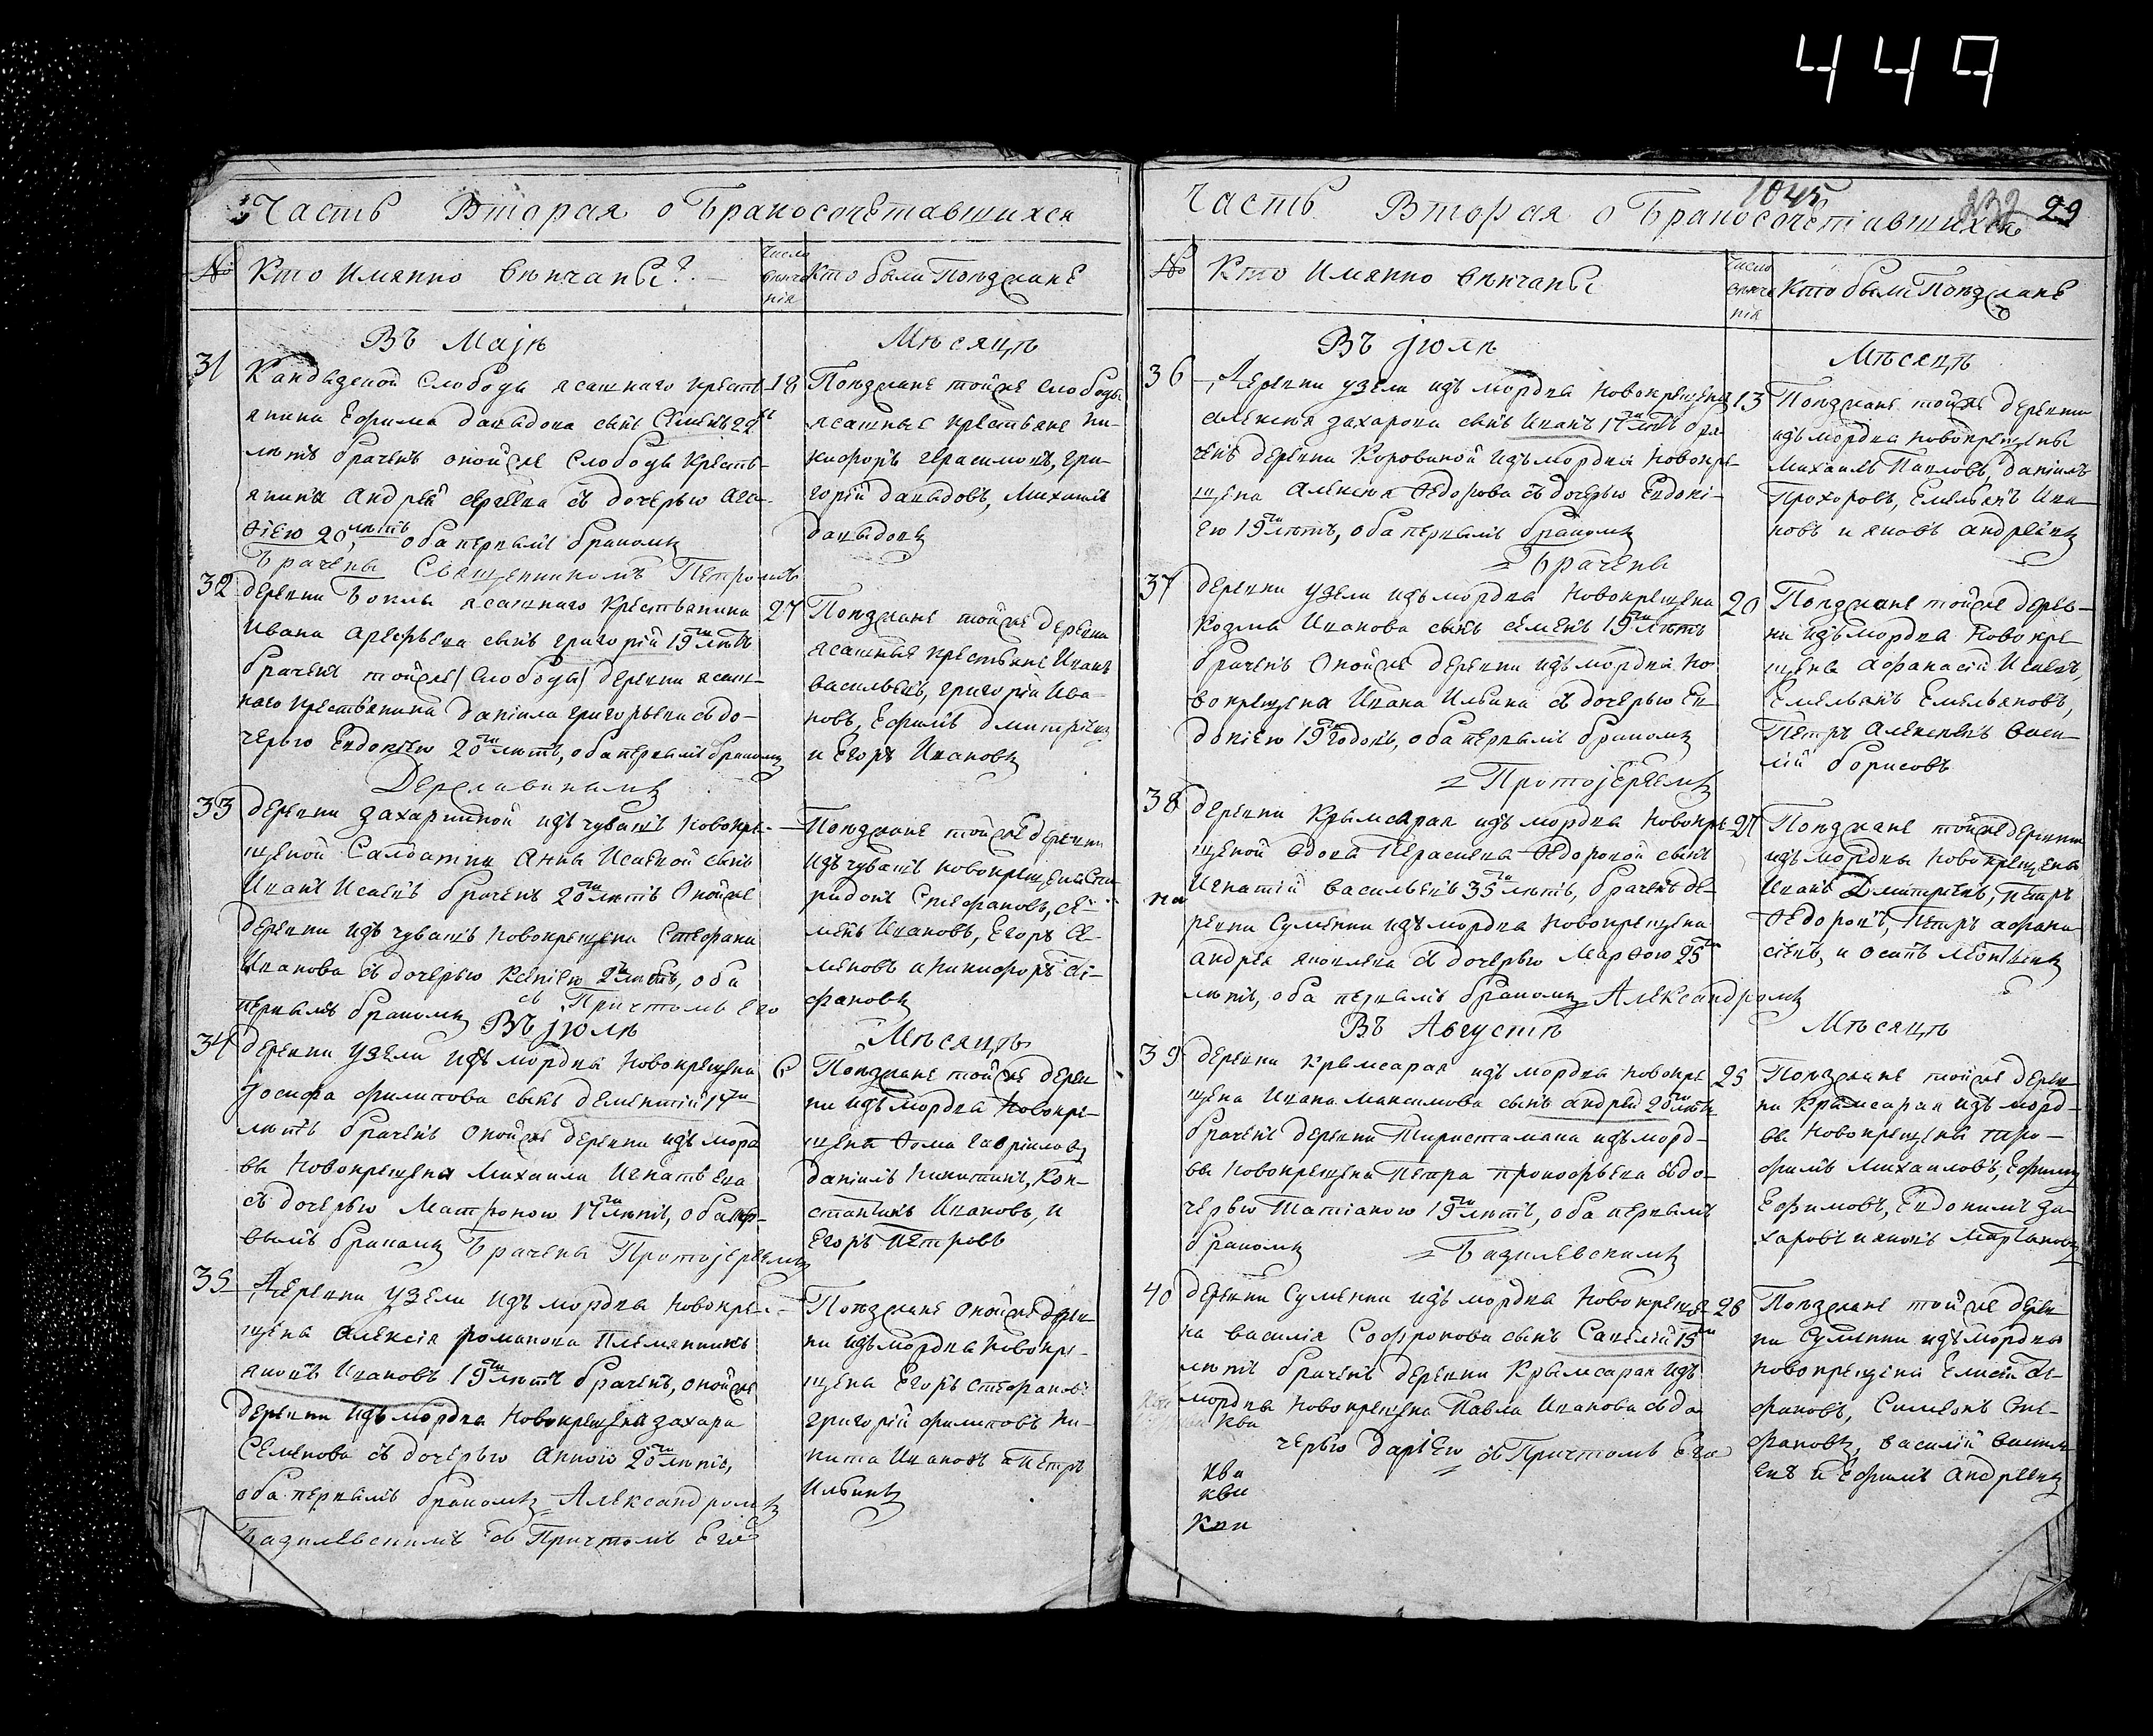 449
Часть Вторая о Бракосочѣтавшихся
№ Кто имянно вѣнчаны? Число вѣнчанія Кто были Поѣзжанѣ
Въ Маіѣ Мѣсяцѣ
31 Кандызской слободы ясашнаго крестъ- 18
янина Ефима давыдова сынъ Семенъ 22
лѣтъ браченъ оной же слободы крестъ-
янина андрея с дочерью ага-
ѳіею 20 лѣтъ оба первымъ бракомъ
Поѣзжане тойже слободы
ясашные крестьяне ни-
кифоръ герасимовъ, гри-
горій давыдовъ, Михаилъ
давыдовъ
Брачены Священникомъ Петромъ
32 деревни ясашнаго крестьянина 27
Ивана арефьева сынъ григорій 19 лѣтъ
браченъ тойже (слободы) деревни ясаш-
наго крестьянина даніила григорьева съ до-
черью Евдокіею 20 лѣтъ, оба первымъ бракомъ
Поѣзжане тойже деревни
ясашные крестьяне Иванъ
васильевъ, григорій Ива-
новъ, Ефимъ дмитріевъ
и Егоръ Ивановъ
Державинымъ
33 деревни захаркиной изъ чувашъ новокре-
щеной Салдатки Анны Исаевой сынъ
Иванъ Исаевъ браченъ 20 лѣтъ оной же
деревни изъ чувашъ новокрещена Стефана
Иванова съ дочерью лѣтъ, оба
первымъ бракомъ съ Причтомъ Его
Поѣзжане тойже деревни
изъ чувашъ новокрещены Спи-
ридонъ Стефановъ, се-
менъ Ивановъ, Егоръ се-
меновъ и никифоръ сте-
фановъ
Въ Іюлѣ Мѣсяцѣ
34 деревни узели изъ мордвы новокрещена 6
Іосифа филипова сынъ дементій 17
лѣтъ браченъ оной же деревни изъ морд
вы новокрещена Михаила Игнатьева
съ дочерью Матроною 17 лѣтъ, оба пер-
вымъ бракомъ Брачены Протоіереемъ
Поѣзжане тойже дерев
ни изъ мордвы новокре-
щены Ѳома гавриловъ
даніилъ никитинъ, Кон-
стантинъ Ивановъ, и
Егоръ Петровъ
35 Деревни узели изъ мордвы новокре-
щена алексія романова племянникъ
яковъ Ивановъ 19 лѣтъ браченъ, оной же
деревни изъ мордвы новокрещена захара
Семенова съ дочерью анною 20 лѣтъ,
оба первымъ бракомъ Александромъ
Базилевскимъ съ Причтомъ Его
Поѣзжане оной же дерев
ни изъ мордвы новокре-
щены Егоръ стефановъ
григорій филиповъ ни-
кита Ивановъ и Петръ
Ильинъ
1045
232
29
Часть Вторая о Бракосочѣтавшихся
№ Кто имянно вѣнчаны Число вѣнчанія Кто были Поѣзжанѣ
Въ Іюлѣ Мѣсяцѣ
36 Деревни узели изъ мордвы новокрещена 13
алексѣя захарова сынъ Иванъ 17 лѣтъ бра-
ченъ деревни Коровиной изъ мордвы новокре-
щена алексѣя ѳедорова съ дочерью Евдокі-
ею 19 лѣтъ, оба первымъ бракомъ
Поѣзжане тойже деревни
изъ мордвы новокрещены
Михаилъ Павловъ, даніилъ
Прохоровъ, Емельянъ Ива-
новъ и яковъ андреевъ
Брачены
37 деревни узели изъ мордвы новокрещена 20
козмы Иванова сынъ семенъ 19 лѣтъ
браченъ оной же деревни изъ мордвы но
вокрещена Ивана Ильина съ дочерью Ев
докіею 19 годовъ, оба первымъ бракомъ
Поѣзжане тойже дерев-
ни изъ мордвы новокре
щены афанасій Исаевъ,
Емельянъ Емельяновъ,
Петръ алексѣевъ васи-
лій борисовъ
Протоіереемъ
38 деревни крымсарая изъ мордвы новокре 27
щеной вдовы ѳедоровой сынъ
Игнатій васильевъ 35 лѣтъ, браченъ де-
ревни Сумѣнки изъ мордвы новокрещена
андрея яковлева съ дочерью марѳою 25
лѣтъ, оба первымъ бракомъ Александромъ
на
Поѣзжане тойже деревни
изъ мордвы новокрещены
Иванъ Дмитріевъ, петръ
ѳедоровъ, петръ афана
сіевъ, и осипъ
Въ Августѣ Мѣсяцѣ
39 деревни крымсарая изъ мордвы новокре 25
щена Ивана максимова сынъ андрей 20 лѣтъ
браченъ деревни изъ морд-
вы новокрещена Петра прокофьева съ до-
черью татіаною 19 лѣтъ, оба первымъ
бракомъ Базилевскимъ
Поѣзжане тойже дерев
ни Крымсарая изъ морд-
вы новокрещены тро-
фимъ михаиловъ, Ефимъ
Ефимовъ, Евдокимъ за-
харовъ и яковъ мартыновъ
40 деревни Сумѣнки изъ мордвы новокреще 26
на василія Софронова сынъ Савелій 19
лѣтъ браченъ деревни Крымсарая изъ
мордвы новокрещена Павла Иванова съ до
черью даріею съ Причтомъ Его
Поѣзжане тойже дерев
ни Сумѣнки изъ мордвы
новокрещены Елисѣй сте-
фановъ, Симеонъ сте-
фановъ, василій василь
евъ и Ефимъ андреевъ